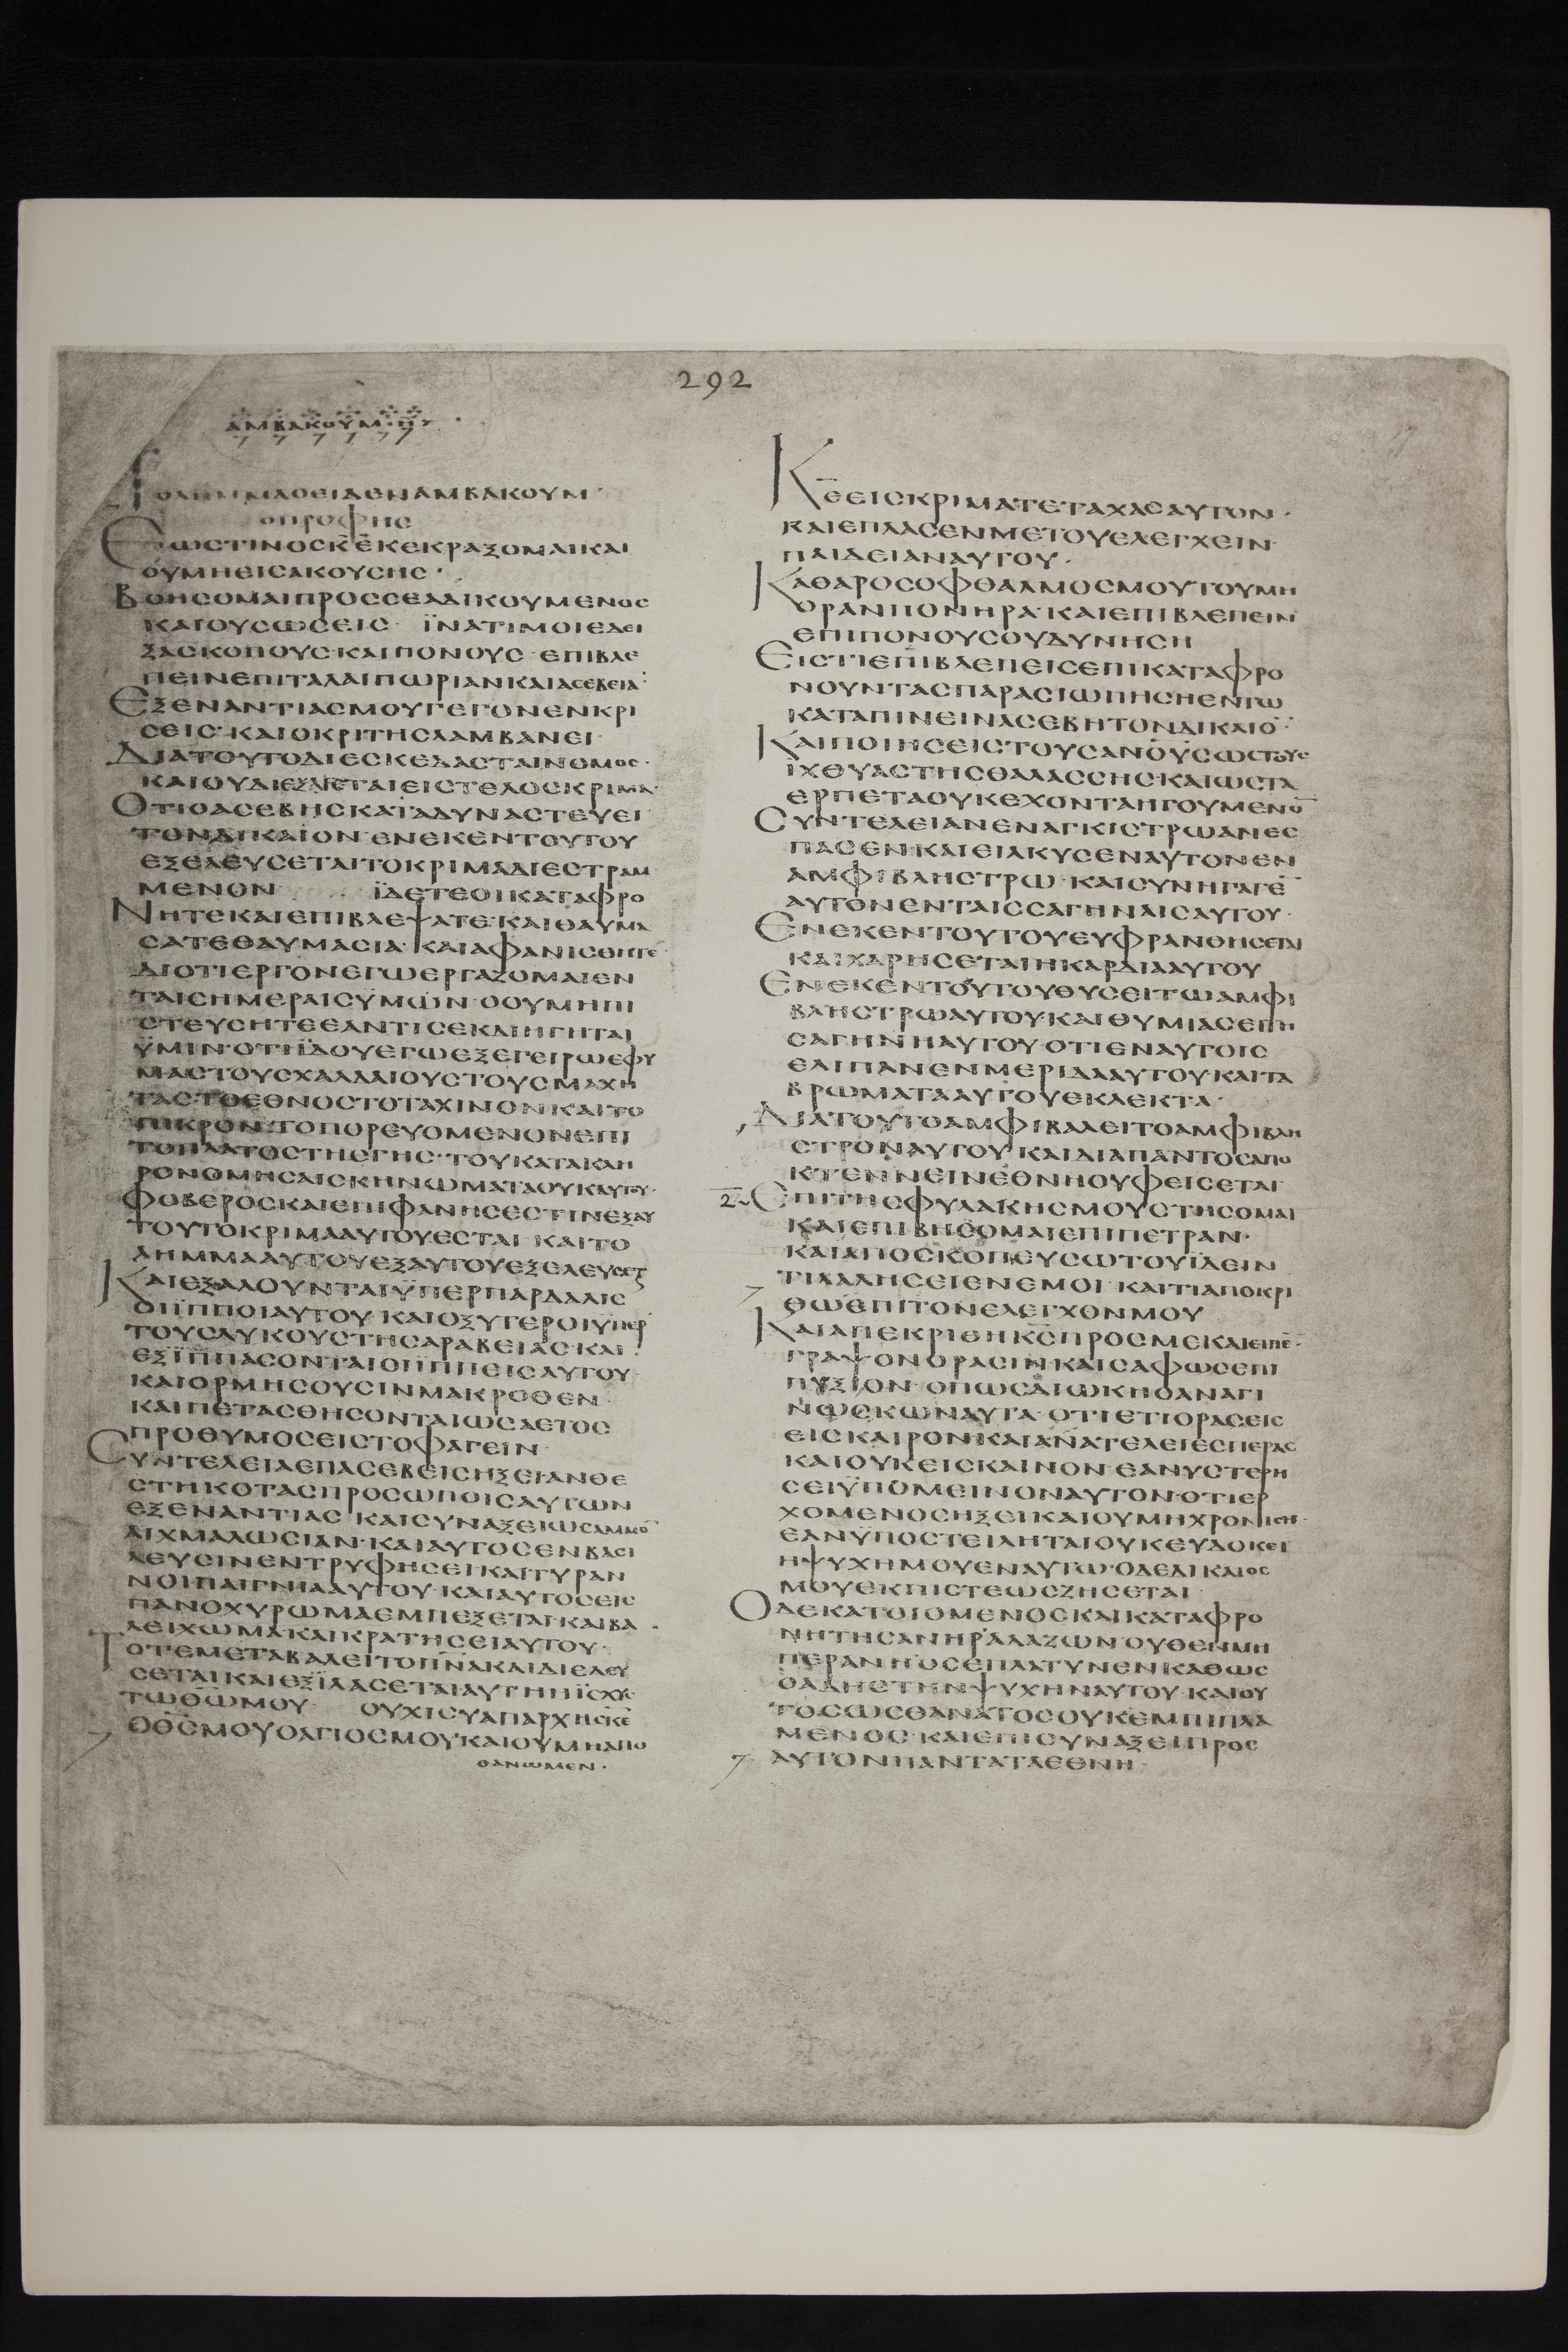 292
ΑΜΒΑΚΟΥΜ·
ΤΟ ΛΗΜΜΑΟΕΙΔΕΝΑΜΒΑΚΟΥΜ·
ΟΠΡΟΦΗΣ
ΕΩΣΤΙΝΟΣΚ̅Ε̅ΚΕΚΡΑΞΟΜΑΙΚΑΙ
ΟΥΜΗΕΙΣΑΚΟΥΣΗΣ·
ΒΟΗΣΟΜΑΙΠΡΟΣΣΕΑΔΙΚΟΥΜΕΝΟΣ
ΚΑΙΟΥΣΩΣΕΙΣ· ΪΝΑΤΙΜΟΙΕΔΕΙ
ΞΑΣΚΟΠΟΥΣ·ΚΑΙΠΟΝΟΥΣ·ΕΠΙΒΛΕ
ΠΕΙΝΕΠΙΤΑΛΑΙΠΩΡΙΑΝΚΑΙΑΣΕΒΕΙΑ·
ΕΞΕΝΑΝΤΙΑΣΜΟΥΓΕΓΟΝΕΝΚΡΙ
ΣΕΙΣ·ΚΑΙΟΚΡΙΤΗΣΛΑΜΒΑΝΕΙ·
ΔΙΑΤΟΥΤΟΔΙΕΣΚΕΔΑΣΤΑΙΝΟΜΟΣ·
ΚΑΙΟΥΔΙΕΞΑΓΕΤΑΙΕΙΣΤΕΛΟΣΚΡΙΜΑ·
ΟΤΙΟΑΣΕΒΗΣΚΑΤΑΔΥΝΑΣΤΕΥΕΙ
ΤΟΝΔΙΚΑΙΟΝ·ΕΝΕΚΕΝΤΟΥΤΟΥ
ΕΞΕΛΕΥΣΕΤΑΙΤΟΚΡΙΜΑΔΙΕΣΤΡΑΜ
ΜΕΝΟΝ ΪΔΕΤΕΟΙΚΑΤΑΦΡΟ
ΝΗΤΕΚΑΙΕΠΙΒΛΕΨΑΤΕ·ΚΑΙΘΑΥΜΑ
ΣΑΤΕΘΑΥΜΑΣΙΑ·ΚΑΙΑΦΑΝΙΣΘΗΤΕ·
ΔΙΟΤΙΕΡΓΟΝΕΓΩΕΡΓΑΖΟΜΑΙΕΝ
ΤΑΙΣΗΜΕΡΑΙΣΥΜΩΝ·ΟΟΥΜΗΠΙ
ΣΤΕΥΣΗΤΕΕΑΝΤΙΣΕΚΔΙΗΓΗΤΑΙ
ΫΜΙΝ·ΟΤΙΪΔΟΥΕΓΩΕΞΕΓΕΙΡΩΕΦΥ
ΜΑΣΤΟΥΣΧΑΛΔΑΙΟΥΣΤΟΥΣΜΑΧΗ
ΤΑΣ·ΤΟΕΘΝΟΣΤΟΤΑΧΙΝΟΝΚΑΙΤΟ
ΠΙΚΡΟΝ·ΤΟΠΟΡΕΥΟΜΕΝΟΝΕΠΙ
ΤΟΠΛΑΤΟΣΤΗΣΓΗΣ·ΤΟΥΚΑΤΑΚΛΗ
ΡΟΝΟΜΗΣΑΙΣΚΗΝΩΜΑΤΑΟΥΚΑΥΤΟΥ·
ΦΟΒΕΡΟΣΚΑΙΕΠΙΦΑΝΗΣΕΣΤΙΝΕΞΑΥ
ΤΟΥΤΟΚΡΙΜΑΑΥΤΟΥΕΣΤΑΙ·ΚΑΙΤΟ
ΛΗΜΜΑΑΥΤΟΥΕΞΑΥΤΟΥΕΞΕΛΕΥΣΕΤ
ΚΑΙΕΞΑΛΟΥΝΤΑΙΫΠΕΡΠΑΡΔΑΛΙΣ
ΟΙΪΠΠΟΙΑΥΤΟΥ·ΚΑΙΟΞΥΤΕΡΟΙΥΠΕΡ
ΤΟΥΣΛΥΚΟΥΣΤΗΣΑΡΑΒΕΙΑΣ·ΚΑΙ
ΕΞΪΠΠΑΣΟΝΤΑΙΟΙΪΠΠΕΙΣΑΥΤΟΥ·
ΚΑΙΟΡΜΗΣΟΥΣΙΝΜΑΚΡΟΘΕΝ·
ΚΑΙΠΕΤΑΣΘΗΣΟΝΤΑΙΩΣΑΕΤΟΣ
ΠΡΟΘΥΜΟΣΕΙΣΤΟΦΑΓΕΙΝ·
ΣΥΝΤΕΛΕΙΑΕΠΑΣΕΒΕΙΣΗΞΕΙΑΝΘΕ
ΣΤΗΚΟΤΑΣΠΡΟΣΩΠΟΙΣΑΥΤΩΝ
ΕΞΕΝΑΝΤΙΑΣ·ΚΑΙΣΥΝΑΞΕΙΩΣΑΜΜΟ̅
ΑΙΧΜΑΛΩΣΙΑΝ·ΚΑΙΑΥΤΟΣΕΝΒΑΣΙ
ΛΕΥΣΙΝΕΝΤΡΥΦΗΣΕΙΚΑΙΤΥΡΑΝ
ΝΟΙΠΑΙΓΝΙΑΑΥΤΟΥ·ΚΑΙΑΥΤΟΣΕΙΣ
ΠΑΝΟΧΥΡΩΜΑΕΜΠΕΞΕΤΑΙ·ΚΑΙΒΑ
ΛΕΙΧΩΜΑ·ΚΑΙΚΡΑΤΗΣΕΙΑΥΤΟΥ·
ΤΟΤΕΜΕΤΑΒΑΛΕΙΤΟΠ̅Ν̅Α̅ΚΑΙΔΙΕΛΕΥ
ΣΕΤΑΙΚΑΙΕΞΪΛΑΣΕΤΑΙΑΥΤΗΗΪΣΧΥΣ·
ΤΩΘ̅Ω̅ΜΟΥ· ΟΥΧΙΣΥΑΠΑΡΧΗΣΚ̅Ε̅
ΟΘ̅Σ̅ΜΟΥΟΑΓΙΟΣΜΟΥΚΑΙΟΥΜΗΑΠΟ
ΘΑΝΩΜΕΝ·
Κ̅Ε̅ΕΙΣΚΡΙΜΑΤΕΤΑΧΑΣΑΥΤΟΝ·
ΚΑΙΕΠΛΑΣΕΝΜΕΤΟΥΕΛΕΓΧΕΙΝ
ΠΑΙΔΕΙΑΝΑΥΤΟΥ·
ΚΑΘΑΡΟΣΟΦΘΑΛΜΟΣΜΟΥΤΟΥΜΗ
ΟΡΑΝΠΟΝΗΡΑ·ΚΑΙΕΠΙΒΛΕΠΕΙΝ
ΕΠΙΠΟΝΟΥΣΟΥΔΥΝΗΣΗ
ΕΙΣΤΙΕΠΙΒΛΕΠΕΙΣΕΠΙΚΑΤΑΦΡΟ
ΝΟΥΝΤΑΣΠΑΡΑΣΙΩΠΗΣΗΕΝΤΩ
ΚΑΤΑΠΙΝΕΙΝΑΣΕΒΗΤΟΝΔΙΚΑΙΟ̅·
ΚΑΙΠΟΙΗΣΕΙΣΤΟΥΣΑΝ̅Ο̅Υ̅Σ̅ΩΣΤΟΥΣ
ΙΧΘΥΑΣΤΗΣΘΑΛΑΣΣΗΣ·ΚΑΙΩΣΤΑ
ΕΡΠΕΤΑΟΥΚΕΧΟΝΤΑΗΓΟΥΜΕΝΟ̅
ΣΥΝΤΕΛΕΙΑΝΕΝΑΓΚΙΣΤΡΩΑΝΕΣ
ΠΑΣΕΝ·ΚΑΙΕΙΛΚΥΣΕΝΑΥΤΟΝΕΝ
ΑΜΦΙΒΛΗΣΤΡΩ·ΚΑΙΣΥΝΗΓΑΓΕ̅
ΑΥΤΟΝΕΝΤΑΙΣΣΑΓΗΝΑΙΣΑΥΤΟΥ·
ΕΝΕΚΕΝΤΟΥΤΟΥΕΥΦΡΑΝΘΗΣΕΤΑΙ
ΚΑΙΧΑΡΗΣΕΤΑΙΗΚΑΡΔΙΑΑΥΤΟΥ
ΕΝΕΚΕΝΤΟΥΤΟΥΘΥΣΕΙΤΩΑΜΦΙ
ΒΛΗΣΤΡΩΑΥΤΟΥΚΑΙΘΥΜΙΑΣΕΙΤΗ
ΣΑΓΗΝΗΑΥΤΟΥ·ΟΤΙΕΝΑΥΤΟΙΣ
ΕΛΙΠΑΝΕΝΜΕΡΙΔΑΑΥΤΟΥΚΑΙΤΑ
ΒΡΩΜΑΤΑΑΥΤΟΥΕΚΛΕΚΤΑ·
ΔΙΑΤΟΥΤΟΑΜΦΙΒΑΛΕΙΤΟΑΜΦΙΒΛΗ
ΣΤΡΟΝΑΥΤΟΥ·ΚΑΙΔΙΑΠΑΝΤΟΣΑΠΟ
ΚΤΕΝΝΕΙΝΕΘΝΗΟΥΦΕΙΣΕΤΑΙ·
2 ΕΠΙΤΗΣΦΥΛΑΚΗΣΜΟΥΣΤΗΣΟΜΑΙ
ΚΑΙΕΠΙΒΗΣΟΜΑΙΕΠΙΠΕΤΡΑΝ·
ΚΑΙΑΠΟΣΚΟΠΕΥΣΩΤΟΥΪΔΕΙΝ
ΤΙΛΑΛΗΣΕΙΕΝΕΜΟΙ·ΚΑΙΤΙΑΠΟΚΡΙ
ΘΩΕΠΙΤΟΝΕΛΕΓΧΟΝΜΟΥ
ΚΑΙΑΠΕΚΡΙΘΗΚ̅Σ̅ΠΡΟΣΜΕΚΑΙΕΙΠΕ̅·
ΓΡΑΨΟΝΟΡΑΣΙΝ·ΚΑΙΣΑΦΩΣΕΠΙ
ΠΥΞΙΟΝ·ΟΠΩΣΔΙΩΚΗΟΑΝΑΓΙ
ΝΩΣΚΩΝΑΥΤΑ·ΟΤΙΕΤΙΟΡΑΣΕΙΣ
ΕΙΣΚΑΙΡΟΝ·ΚΑΙΑΝΑΤΕΛΕΙΕΣΠΕΡΑΣ
ΚΑΙΟΥΚΕΙΣΚΑΙΝΟΝ·ΕΑΝΥΣΤΕΡΗ
ΣΕΙΫΠΟΜΕΙΝΟΝΑΥΤΟΝ·ΟΤΙΕΡ
ΧΟΜΕΝΟΣΗΞΕΙΚΑΙΟΥΜΗΧΡΟΝΙΣΗ·
ΕΑΝΥΠΟΣΤΕΙΛΗΤΑΙΟΥΚΕΥΔΟΚΕΙ
ΗΨΥΧΗΜΟΥΕΝΑΥΤΩ·ΟΔΕΔΙΚΑΙΟΣ
ΜΟΥΕΚΠΙΣΤΕΩΣΖΗΣΕΤΑΙ·
ΟΔΕΚΑΤΟΙΟΜΕΝΟΣΚΑΙΚΑΤΑΦΡΟ
ΝΗΤΗΣΑΝΗΡΑΛΑΖΩΝ·ΟΥΘΕΝΜΗ
ΠΕΡΑΝΗ·ΟΣΕΠΛΑΤΥΝΕΝΚΑΘΩΣ
ΟΑΔΗΣΤΗΝΨΥΧΗΝΑΥΤΟΥ·ΚΑΙΟΥ
ΤΟΣΩΣΘΑΝΑΤΟΣΟΥΚΕΜΠΙΠΛΑ
ΜΕΝΟΣ·ΚΑΙΕΠΙΣΥΝΑΞΕΙΠΡΟΣ
ΑΥΤΟΝΠΑΝΤΑΤΑΕΘΝΗ·